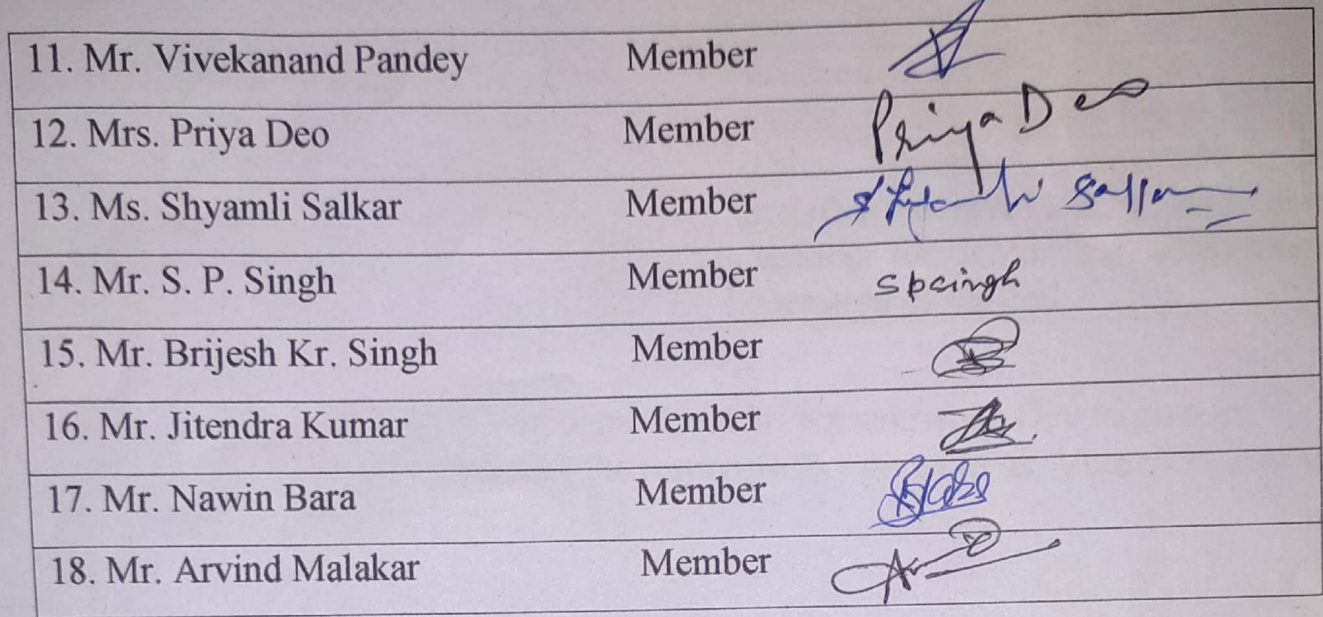 11. Mr. Vivekanand Pandey Member
12. Mrs. Priya Deo Member Priya Deo
13. Ms. Shyamli Salkar Member
14. Mr. S. P. Singh Member spsingh
15. Mr. Brijesh Kr. Singh Member
16. Mr. Jitendra Kumar Member
17. Mr. Nawin Bara Member
18. Mr. Arvind Malakar Member